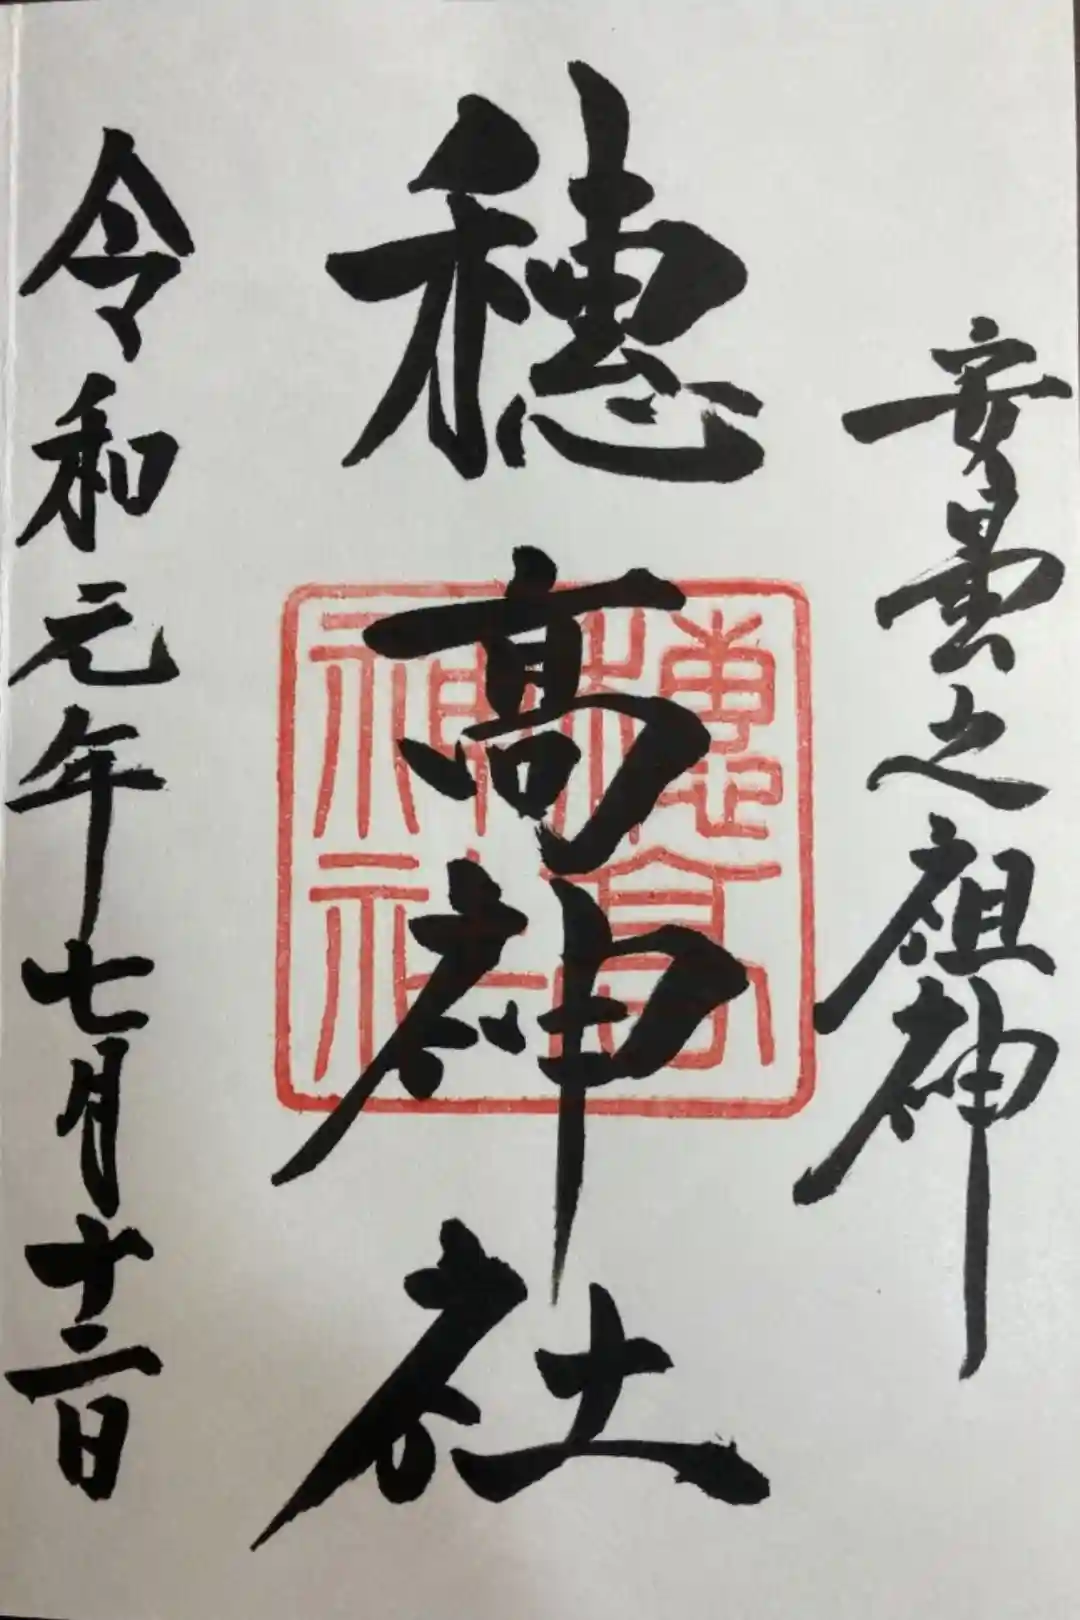 安曇之祖神
穂高神社
穂高
神社
令和元年七月十二日